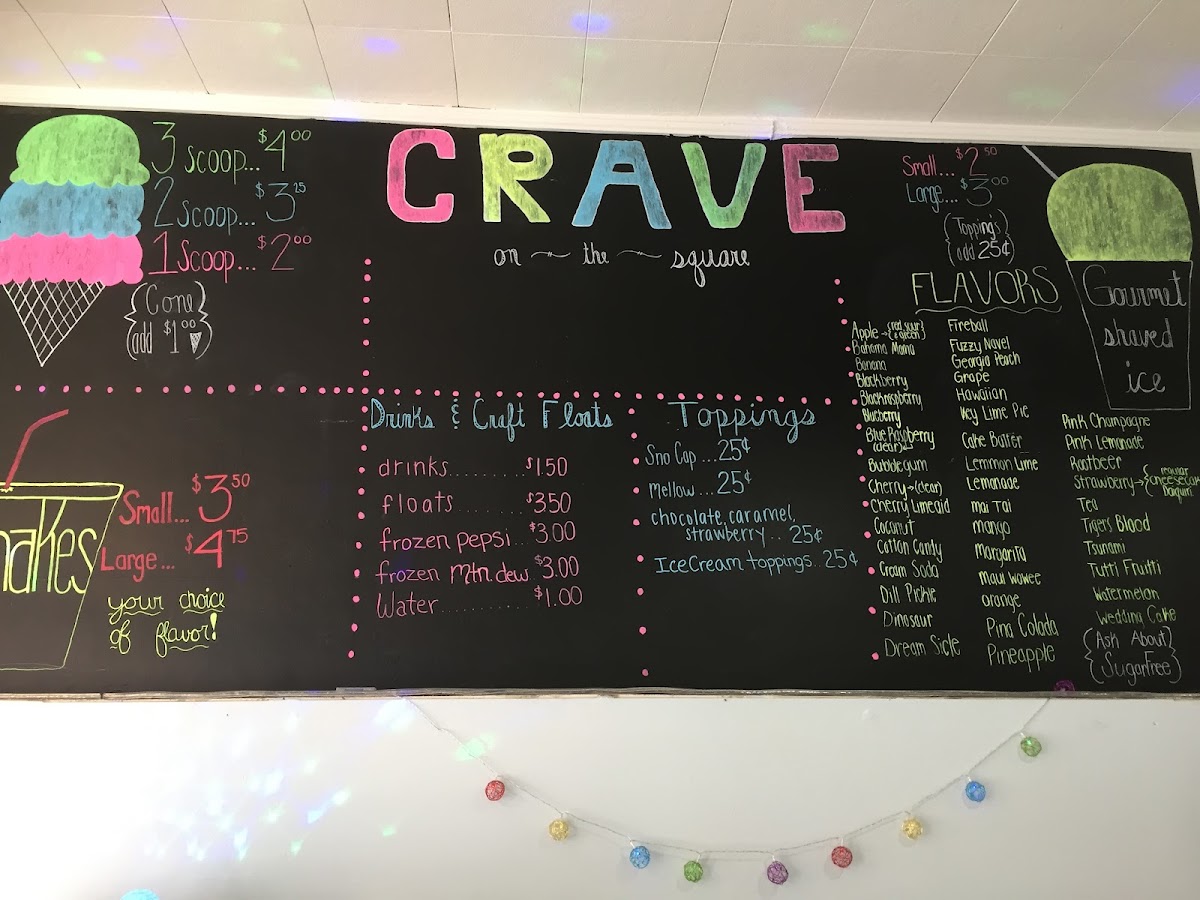 3 Scoop... $4.00
2 Scoop... $3.25
1 Scoop... $2.00
{Cone
add $1.00}
CRAVE
on the square
Small... $2.50
Large... $3.00
(Topping's
add 25¢)
Gourmet
shaved
ice
FLAVORS
Apple → {red sour
& green}
Bahama Mama
Banana
Blackberry
Blackraspberry
Blueberry
Blue Raspberry
(clear)
Bubblegum
Cherry → (clear)
Cherry Limeaid
Coconut
Cotton Candy
Cream Soda
Dill Pickle
Dinosaur
Dream Sicle
Fireball
Fuzzy Navel
Georgia Peach
Grape
Hawaiian
Key Lime Pie
Cake Batter
Lemmon Lime
Lemonade
mai Tai
mango
margarita
maui wowee
orange
Pina Colada
Pineapple
Pink Champagne
Pink Lemonade
Rootbeer
Strawberry → {regular
Tea
Tigers Blood
Tsunami
Tutti Fruitti
Watermelon
Wedding Cake
(Ask About)
{SugarFree}
Small... $3.50
Large... $4.75
your choice
of flavor!
Drinks & Craft Floats
drinks......... $1.50
floats......... $3.50
frozen pepsi.. $3.00
frozen mtn dew. $3.00
Water........... $1.00
Toppings
Sno Cap ... 25¢
mellow ... 25¢
chocolate, caramel,
strawberry.. 25¢
IceCream toppings.. 25¢